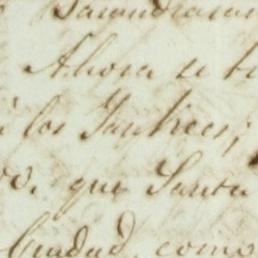 Ahora se
á los Yankees;
que Santa
Ciudad, como